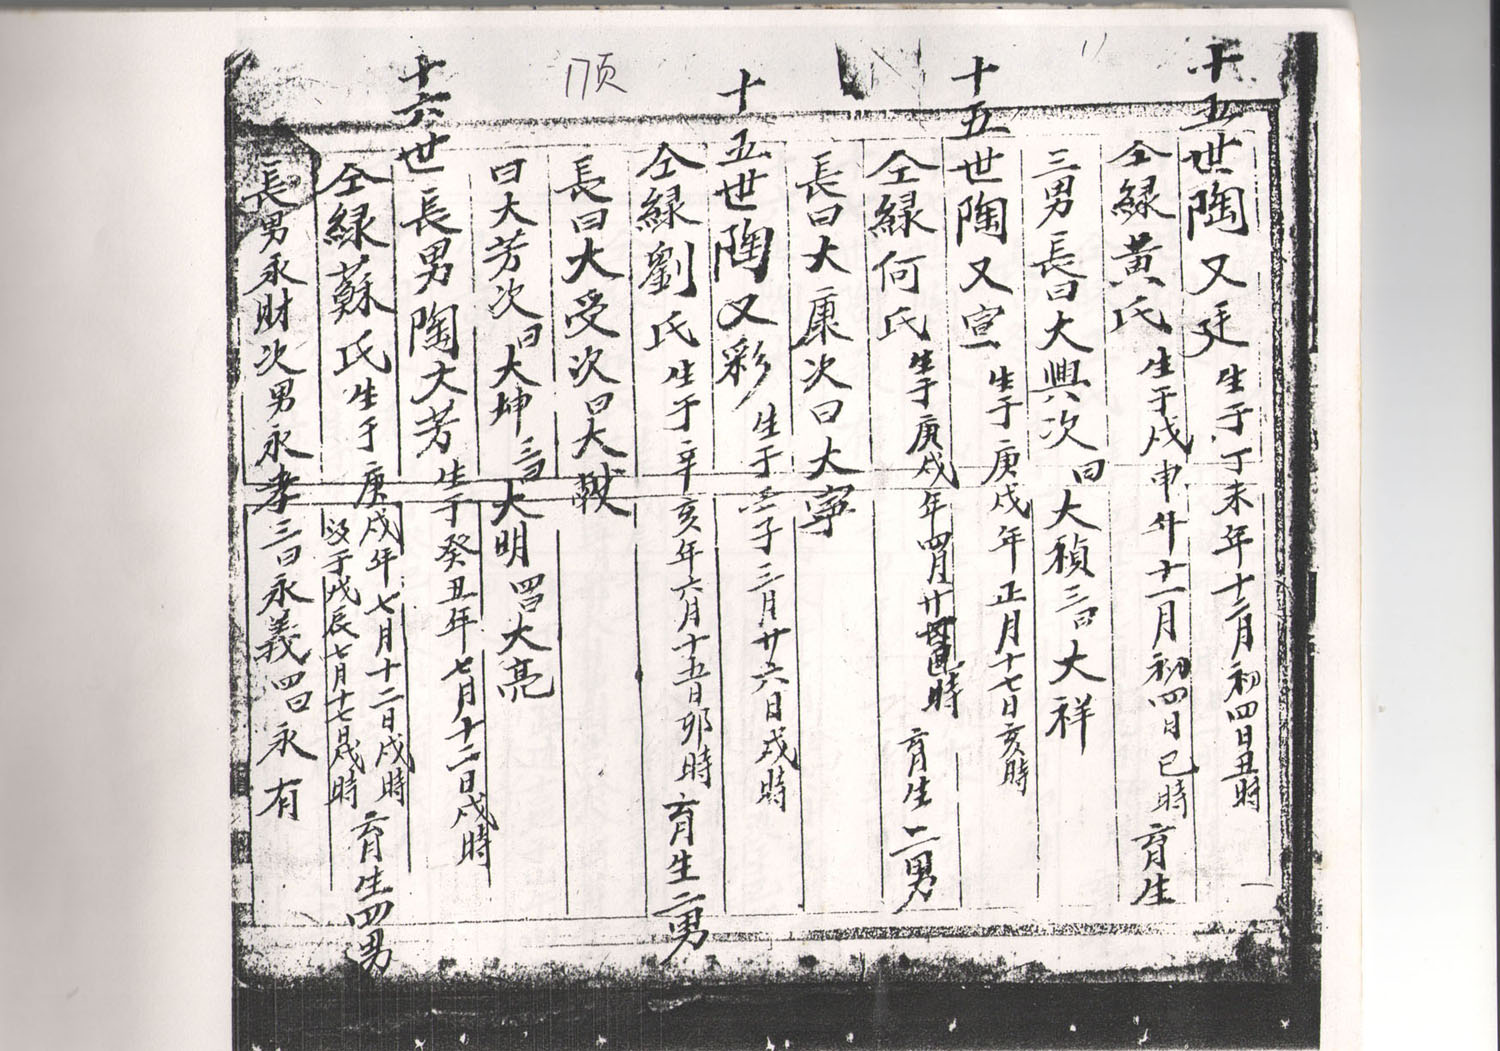 17页
十五世陶又廷生于丁未年十二月初四日丑時
仝緑黃氏生于戊申年十一月初四日巳時育生
三男長曰大興次曰大禎三曰大祥
十五世陶又宣生于庚戌年正月十七日亥時
仝緑何氏生于庚戌年四月廿時育生二男
長曰大康次曰大寧
十五世陶又彩生于壬子三月廿六日戌時
仝緑劉氏生于辛亥年六月十五日卯時育生二男
長曰大受次曰大
曰大芳次曰大坤三曰大明四曰大亮
十六世長男陶大芳生于癸丑年七月十二日戌時
仝緑蘇氏生于庚戌年七月十二日戌時育生四男
歿于戊辰七月十七日戌時
長男永財次男永孝三曰永義四曰永有